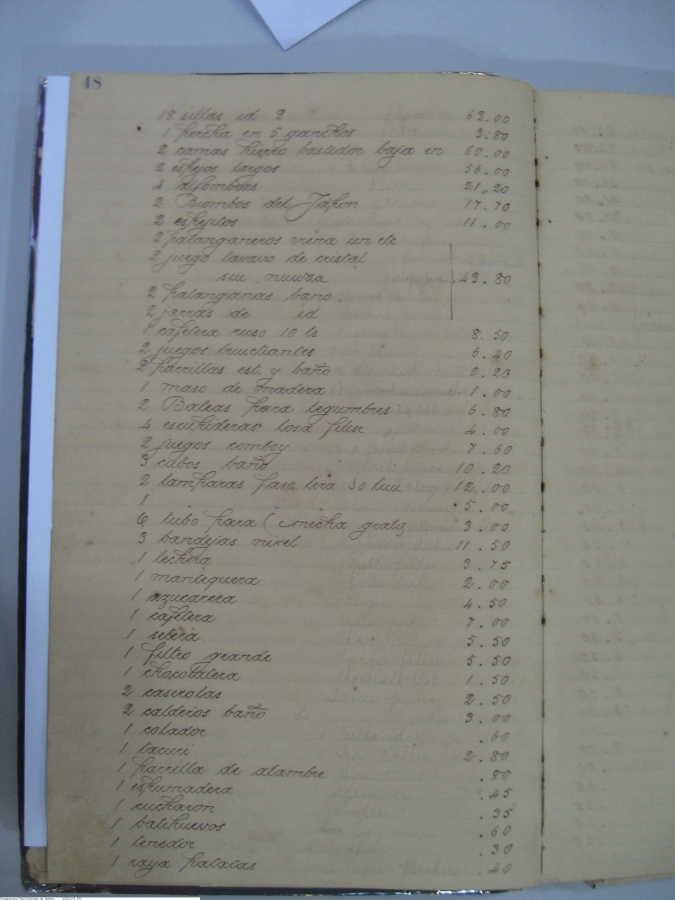 48
18 sillas id 2 63.00
1 percha en 5 ganchos 3.80
2 camas hierro bastidor baja en 60.00
2 espejos largos 56.00
4 alfombras 21.20
2 Biombos del Japon 17.70
2 espejitos 11.00
2 palanganeros viena un etc
2 juego lavavo de cristal
sin 43.80
2 palanganas baño
2 jarras de id
1 cafetera ruso 10 ts 8.50
2 juegos trinchantes 6.40
2 parrillas est. y baño 2.20
1 maso de madera 1.00
2 Bateas para legumbres 6.80
4 escupideras losa 4.00
2 juegos comboy 7.60
3 cubos baño 10.20
2 lamparas lira 30 12.00
1 5.00
6 tubo para (mecha gratis 3.00
3 bandejas nikel 11.50
1 lechera 3.75
1 mantequera 2.00
1 azucarera 4.50
1 cafetera 7.00
1 5.50
1 filtro grande 5.50
1 chocolatera 1.50
2 caserolas 2.50
2 calderos baño 3.00
1 colador .60
1 2.80
1 parrilla de alambre .80
1 espumadera .45
1 cucharon .35
1 batihuevos .60
1 tenedor .30
1 raya patatas .40